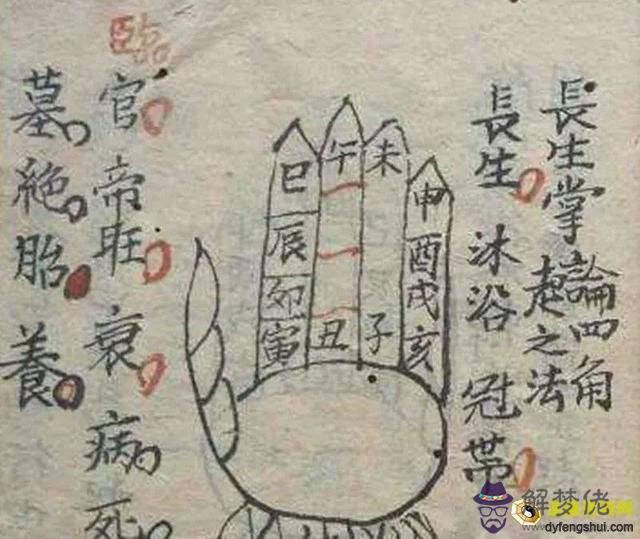 長生掌
論四角
起之法
長生 沐浴 冠帶
申酉戌亥
未子
午丑
巳辰卯寅
臨官 帝旺 衰 病 死
墓絶胎養
解梦佬
www.dyfengshui.com